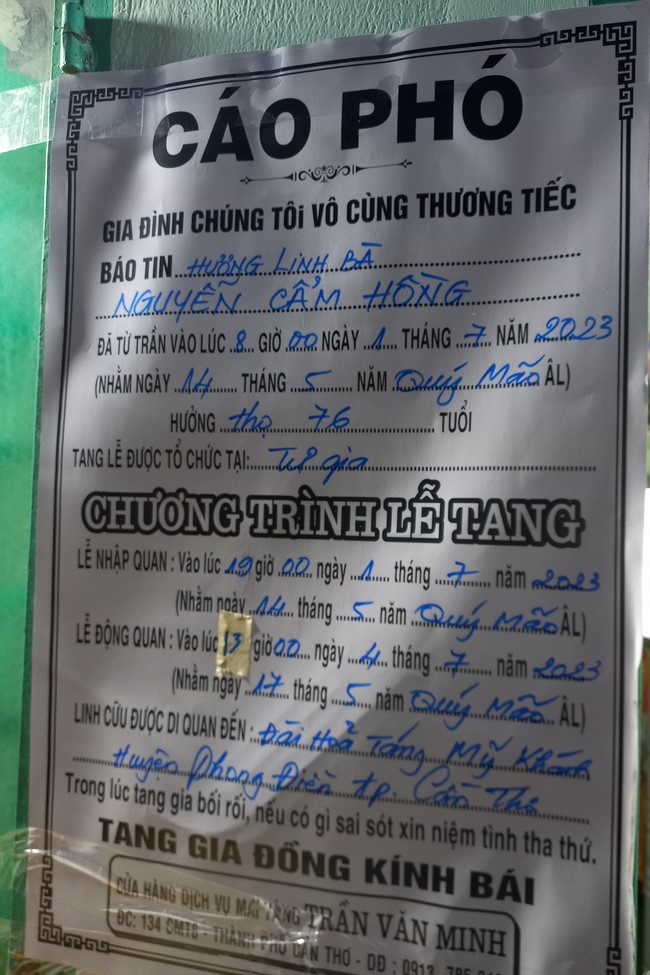 CÁO PHÓ
GIA ĐÌNH CHÚNG TÔi VÔ CÙNG THƯƠNG TIẾC
BÁO TIN Hưởng Linh BÀ
NGUYỄN CẨM HỒNG
ĐÃ TỪ TRẦN VÀO LÚC 8 GIỜ 00 NGÀY 1 THÁNG 7 NĂM 2023
(NHẰM NGÀY 14 THÁNG 5 NĂM Quý Mão ÂL)
HƯỞNG thọ 76 TUỔI
TANG LỄ ĐƯỢC TỔ CHỨC TẠI: Tư gia
CHƯƠNG TRÌNH LỄ TANG
LỄ NHẬP QUAN : Vào lúc 19 giờ 00 ngày 1 tháng 7 năm 2023
(Nhằm ngày 14 tháng 5 năm Quý Mão ÂL)
LỄ ĐỘNG QUAN : Vào lúc 13 giờ 00 ngày 4 tháng 7 năm 2023
(Nhằm ngày 17 tháng 5 năm Quý Mão ÂL)
LINH CỮU ĐƯỢC DI QUAN ĐẾN : Đài Hoả Táng Mỹ Khánh
Huyện Phong Điền tp. Cần Thơ
Trong lúc tang gia bối rối, nếu có gì sai sót xin niệm tình tha thứ.
TANG GIA ĐỒNG KÍNH BÁI
CỬA HÀNG DỊCH VỤ MAI TÁNG TRẦN VĂN MINH
ĐC: 134 - THÀNH PHỐ CẦN THƠ - DĐ : 0913